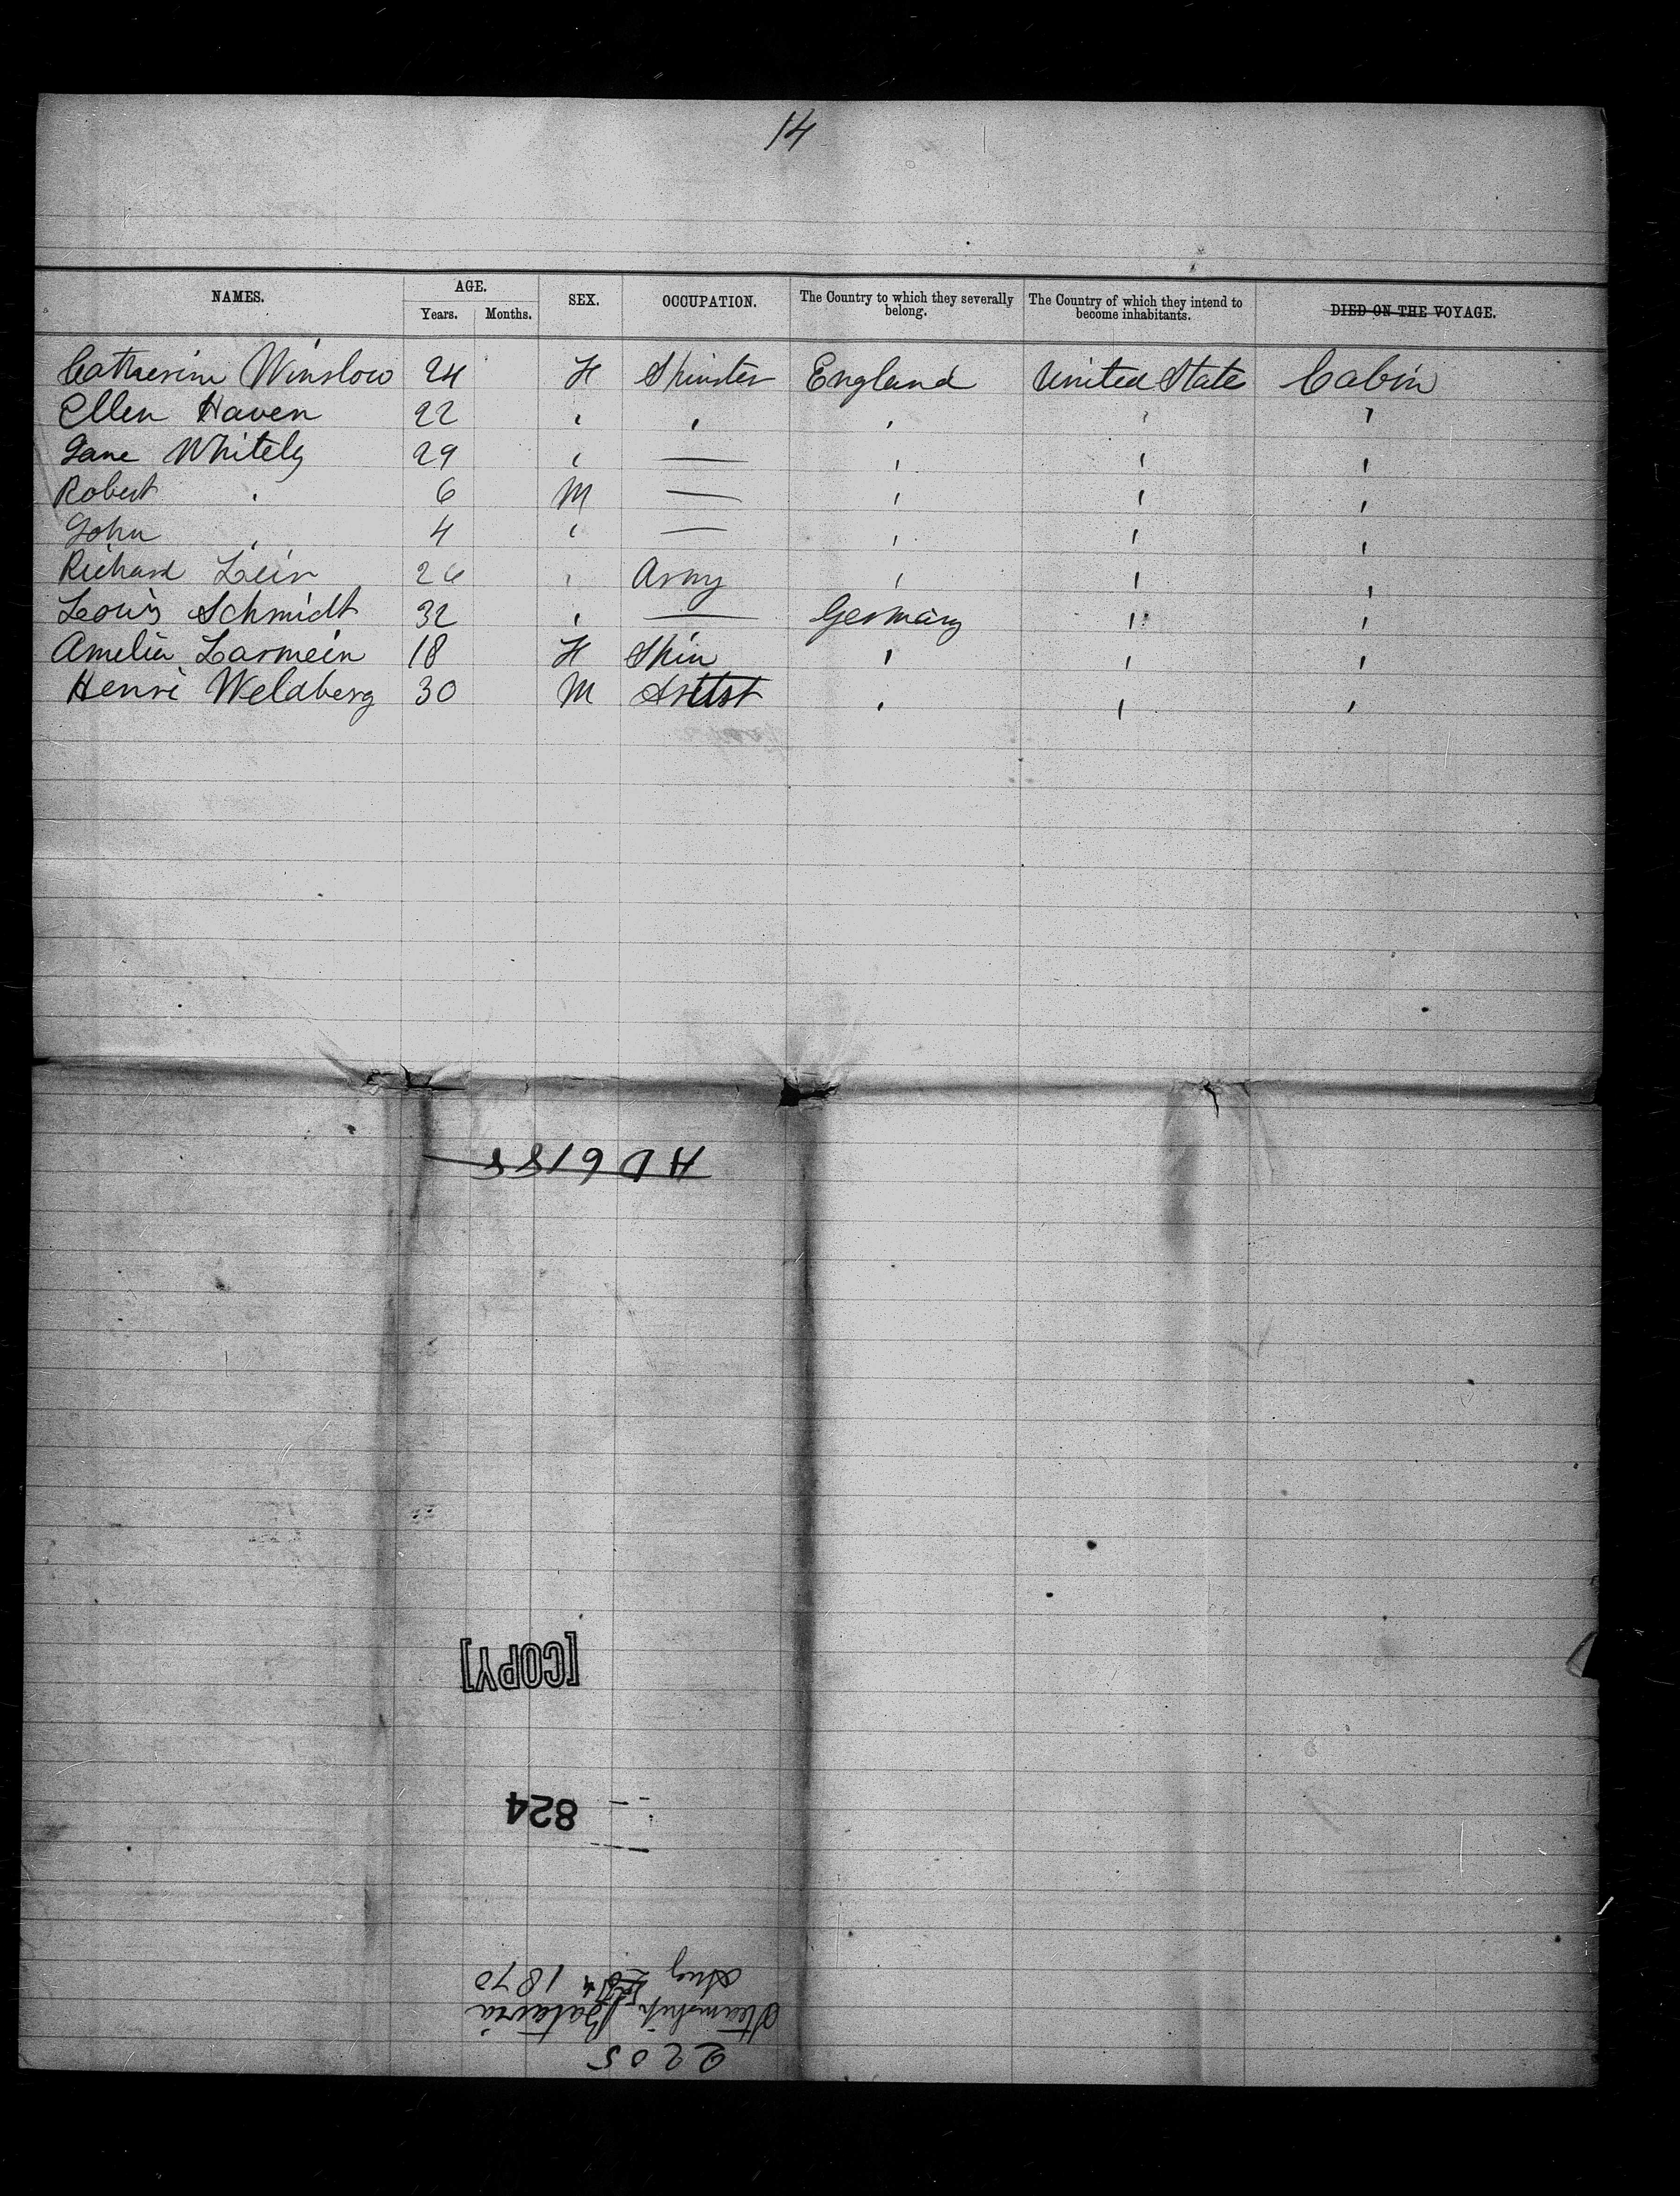 14
NAMES. AGE. SEX. OCCUPATION. The Country to which they severally belong. The Country of which they intend to become inhabitants. DIED ON THE VOYAGE.
Years. Months.
Catherine Winslow 24 F Spinster England United State Cabin
Ellen Haven 22 " " " " "
Jane Whitely 29 " — " " "
Robert " 6 M — " " "
John " 4 " — " " "
Richard Leir 26 " Army " " "
Louis Schmidt 32 " — Germany " "
Amelia Larmein 18 F Spin " " "
Henri Weldberg 30 M Artist " " "
AD6188
[COPY]
824
2205
Steamship Batavia
Aug 1870